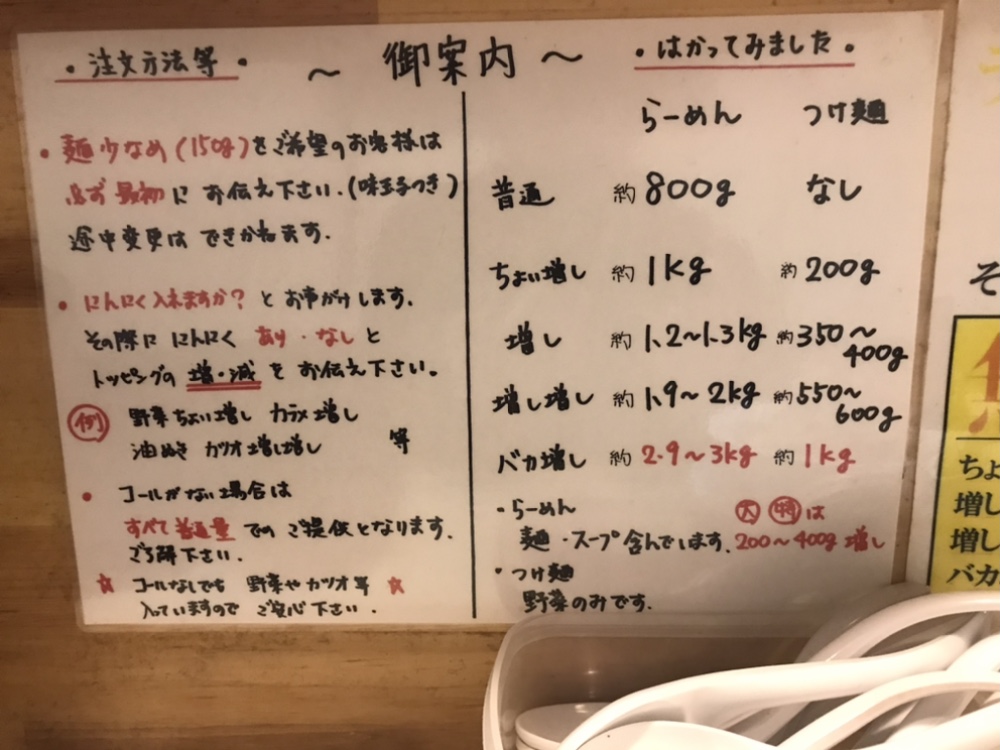 ～ 御案内 ～
・注文方法等・
・麺少なめ(150g)をご希望のお客様は
必ず最初に お伝え下さい.(味玉子つき)
途中変更は できかねます.
・にんにく入れますか？と お声がけします.
その際に にんにく あり・なし と
トッピングの 増・減 を お伝え下さい。
例 野菜ちょい増し カラメ増し
油ぬき カツオ増し増し 等
・コールがない場合は
すべて普通量 での ご提供となります.
ご了解下さい.
☆ コールなしでも 野菜やカツオ等 ☆
入っていますので ご安心下さい.
・はかってみました・
らーめん つけ麺
普通 約800g なし
ちょい増し 約1kg 約200g
増し 約1.2〜1.3kg 約350〜400g
増し増し 約1.9〜2kg 約550〜600g
バカ増し 約2.9〜3kg 約1kg
・らーめん 大 特 は
麺・スープ含んでいます. 200〜400g増し
・つけ麺
野菜のみです.
そ
ちょ
増し
増し
バカ